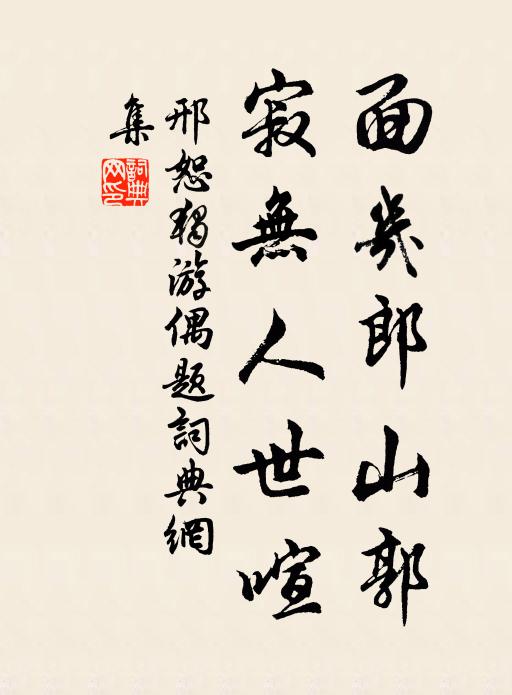 面幾郎山郭
寂無人世喧
邢恕獨游偶題詞典網
集
詞典網印